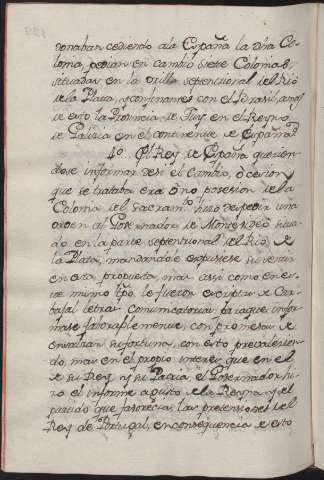 donaban cediendo ála España la dha Co-
lonia, pedian en cambio Siete Colonias
situadas en la orilla septentrional del Rio
dela Plata, y confinantes con el Brasil, amas
de esto la Provincia de Tuy en el Reyno
de Galicia en el continente de España.
4º El Rey de España querien-
dose informar de si el cambio, ó cesion
que se trataba era ó no posesion dela
Colonia del Sacramto hizo despedir una
orden al Governador de Montevideo situa-
do en la parte septentrional del Rio de
la Plata, mandandole expusiese su sentir
en esta propuesta, mas assi como en es-
te mismo tpo le fueron escriptas de Car-
bajal letras Comunicatorias para que infor-
mase favorablemente, con promesas de
su fortuna, con esto prevalecien-
do, mas en el propio interes que en el
de su Rey, y su Patria, el Governador hi-
zo el informe á gusto de la Reyna y el
partido que favorecia las pretensiones del
Rey de Portugal, en consequencia de esto